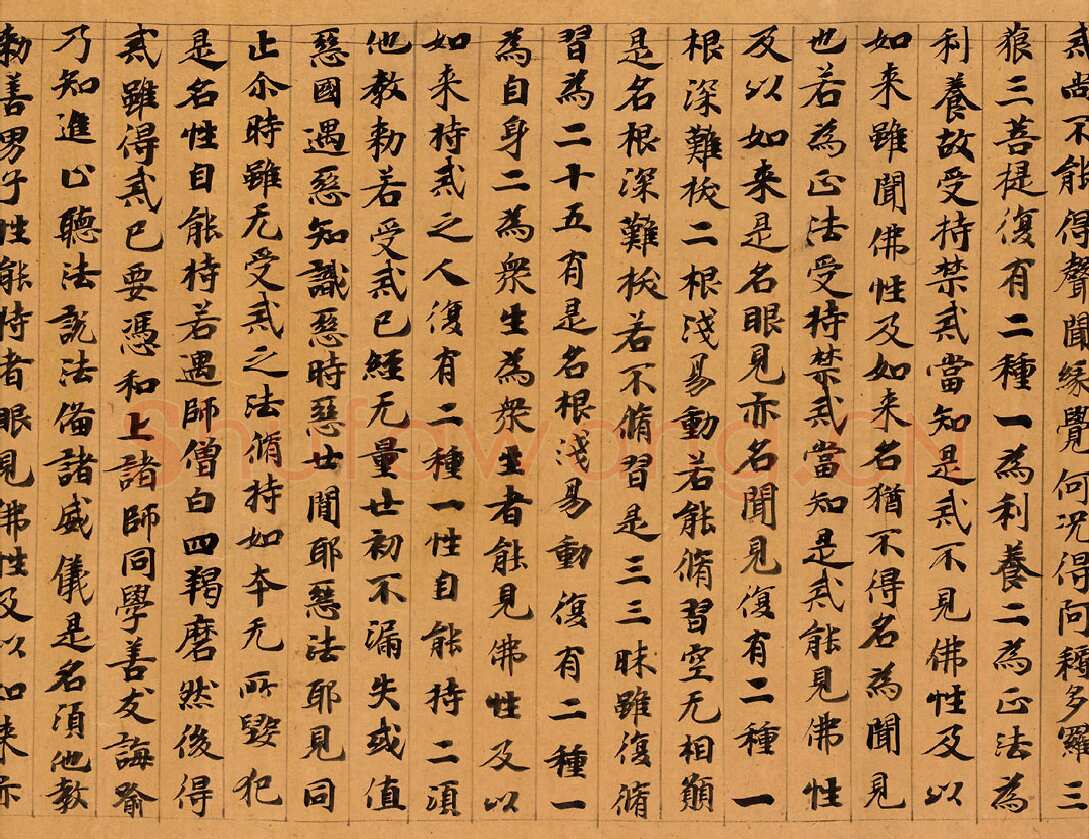 戒尚不能得聲聞緣覺何況得阿耨多羅三
藐三菩提復有二種一為利養二為正法為
利養故受持禁戒當知是戒不見佛性及以
如來雖聞佛性及如来名猶不得名為聞見
也若為正法受持禁戒當知是戒能見佛性
及以如来是名眼見亦名聞見復有二種一
根深難拔二根淺易動若能脩習空无相願
是名根深難拔若不脩習是三三昧雖復脩
習為二十五有是名根淺易動復有二種一
為自身二為衆生為衆生者能見佛性及以
如来持戒之人復有二種一性自能持二須
他教勑若受戒已經无量世初不漏失或值
惡國遇惡知識惡時惡世聞耶惡法耶見同
止尒時雖无受戒之法脩持如本无所毀犯
是名性自能持若遇師僧白四羯磨然後得
戒雖得戒已要憑和上諸師同學善友誨喻
乃知進止聽法說法俻諸威儀是名須他教
勑善男子性能持者眼見佛性及以如来亦
Shufawang.CN